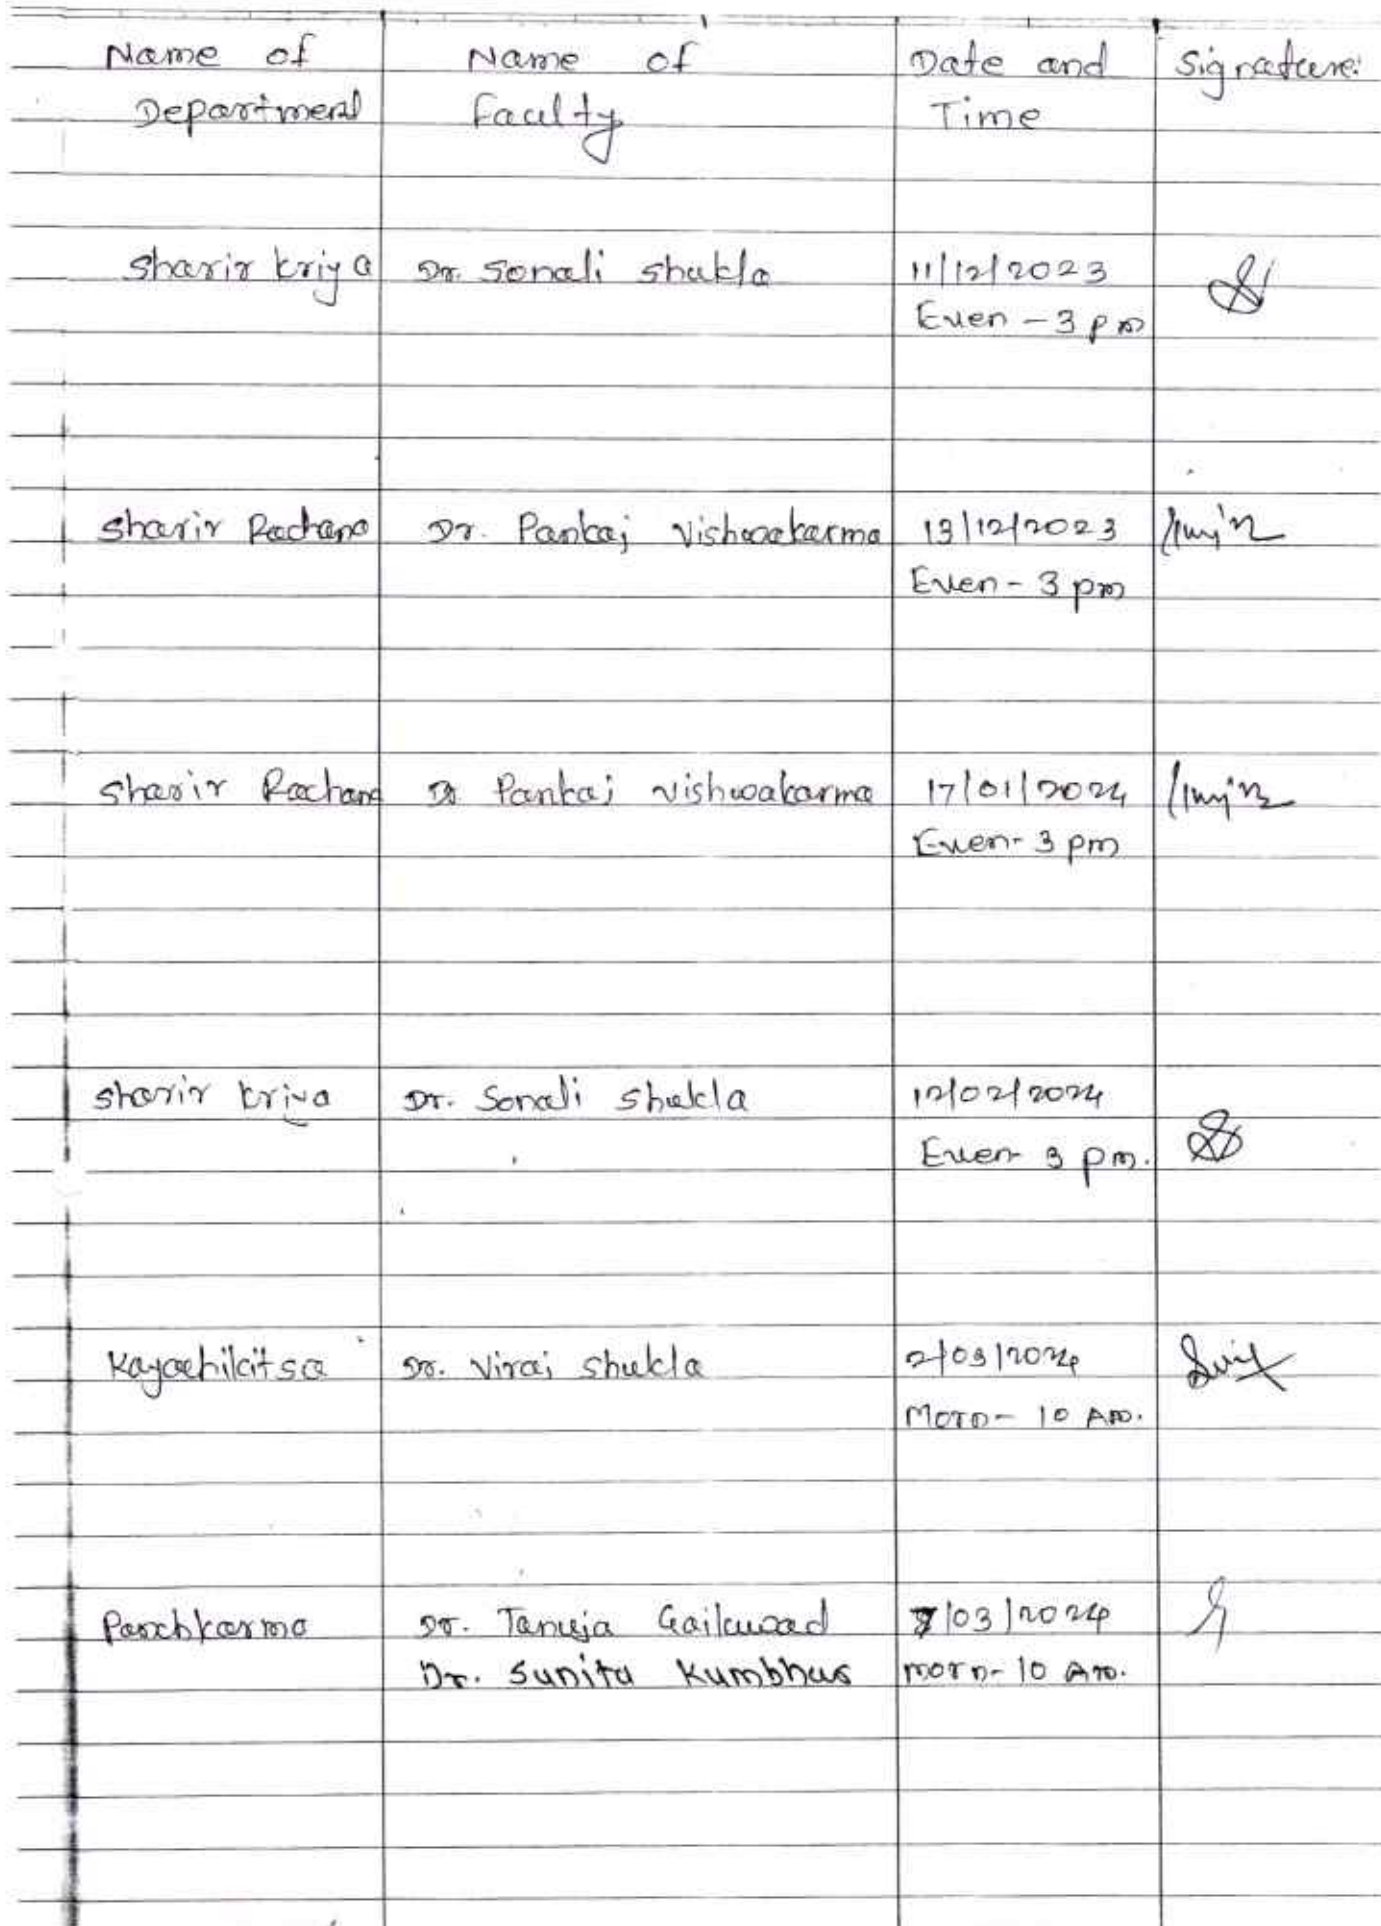 Name of Name of Date and Signature:
Department Faculty Time
Sharir Kriya Dr. Sonali Shukla 11/12/2023
Even - 3 pm
Sharir Rachana Dr. Pankaj Vishwakarma 13/12/2023
Even - 3 pm
Sharir Rachana Dr Pankaj Vishwakarma 17/01/2024
Even - 3 pm
Sharir Kriya Dr. Sonali Shukla 12/02/2024
Even - 3 pm.
Kayachikitsa Dr. Viraj Shukla 2/03/2024
Morn - 10 Am.
Panchkarma Dr. Tanuja Gaikwad 7/03/2024
Dr. Sunita Kumbhar morn - 10 Am.